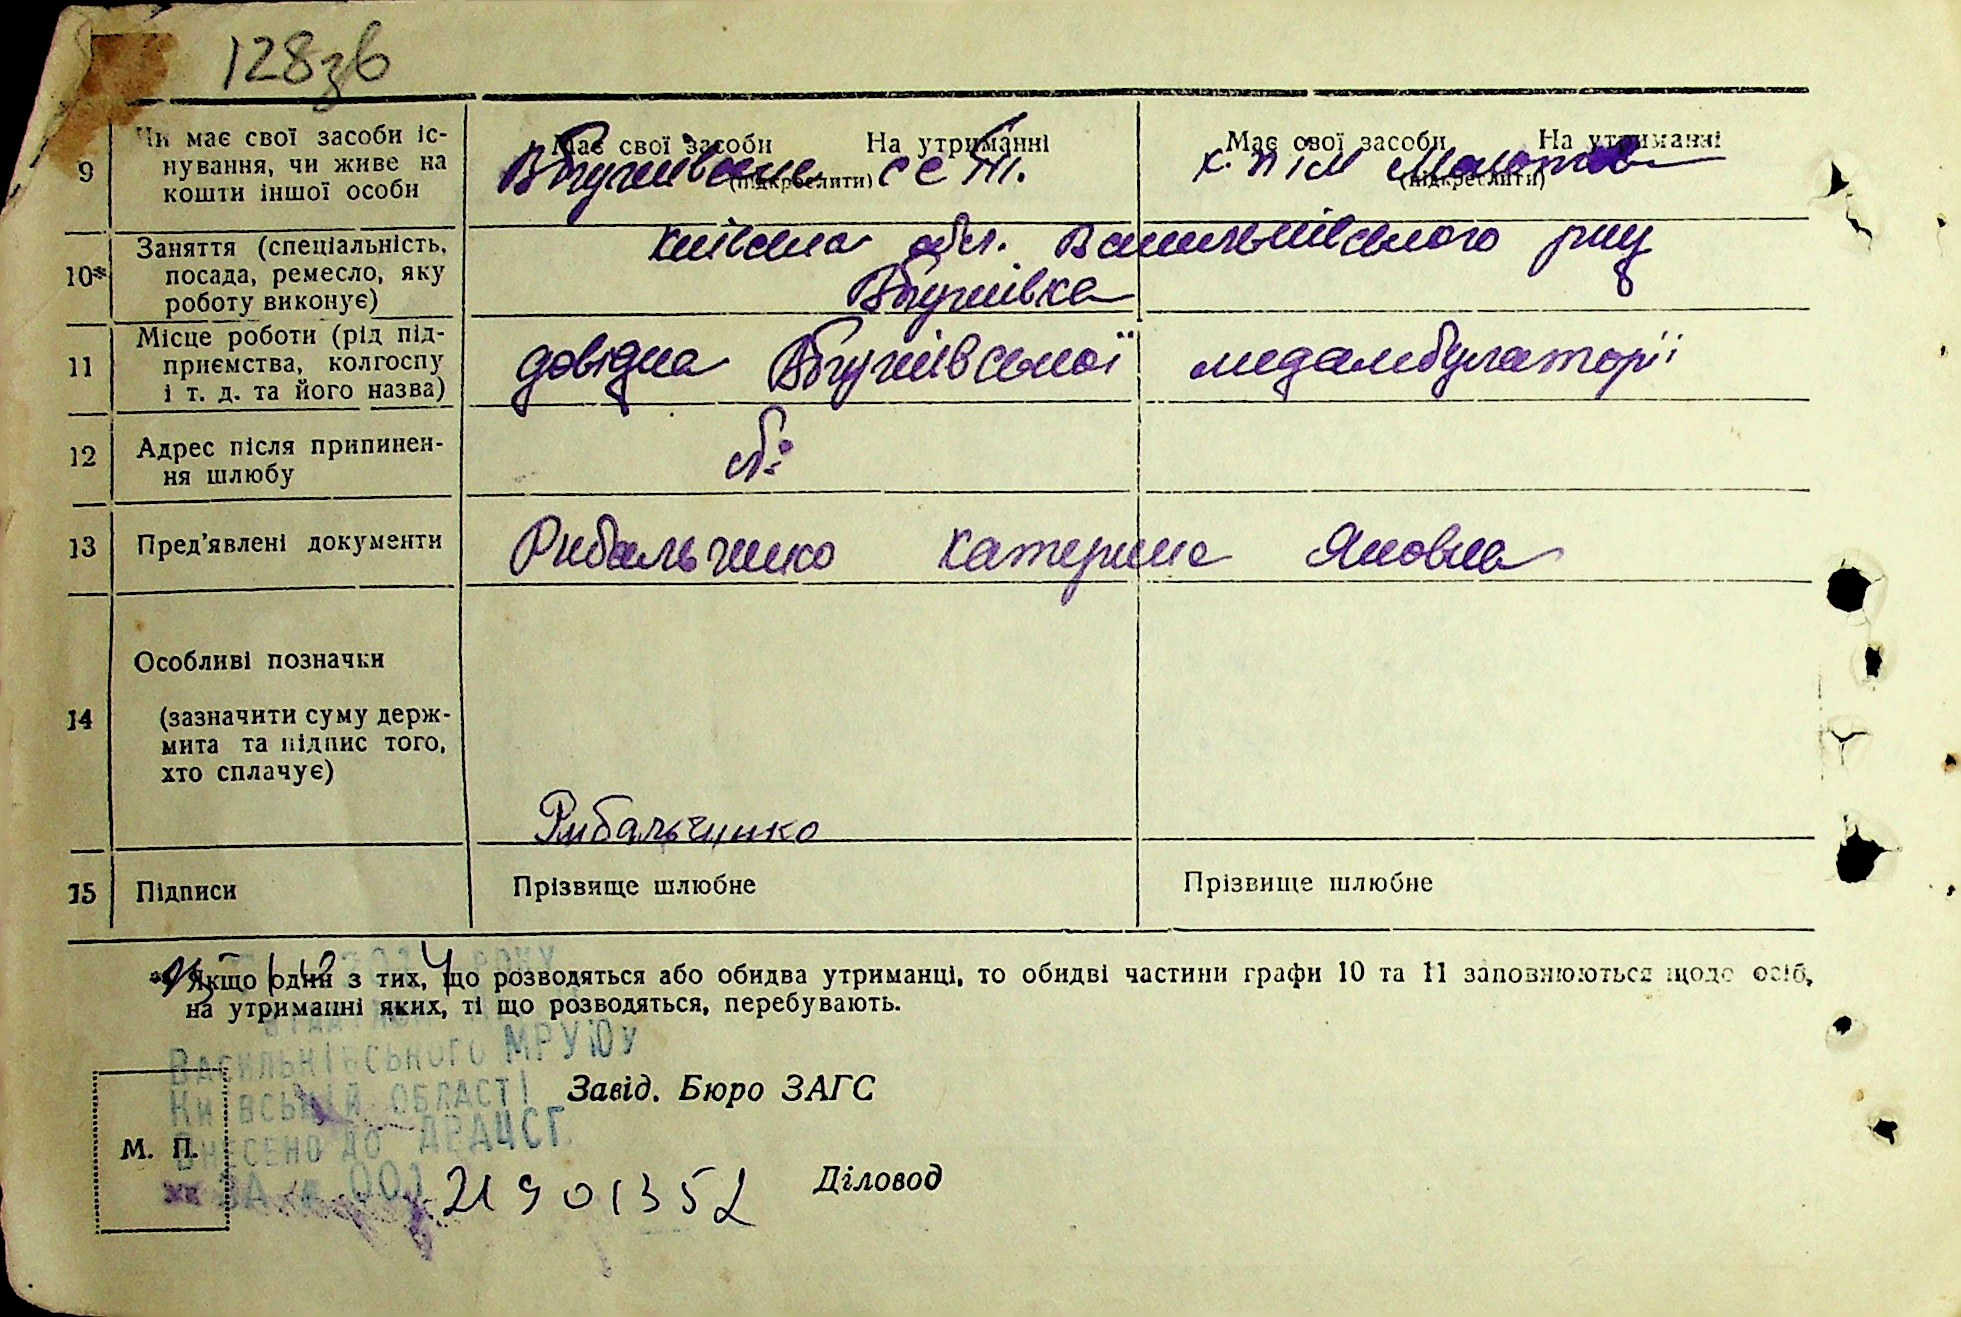 128зв
9
Чи має свої засоби іс-
нування, чи живе на
кошти іншої особи
Має свої засоби На утриманні
(підкреслити)
Має свої засоби На утриманні
(підкреслити)
к-п ім Молотова
10*
Заняття (спеціальність,
посада, ремесло, яку
роботу виконує)
київська обл. Васильківського р-ну
11
Місце роботи (рід під-
приємства, колгоспу
і т. д. та його назва)
довідка медамбулаторії
12
Адрес після припинен-
ня шлюбу
13
Пред'явлені документи
Рибальченко Катерина Яковна
14
Особливі позначки
(зазначити суму держ-
мита та підпис того,
хто сплачує)
Рибальченко
15
Підписи
Прізвище шлюбне
Прізвище шлюбне
* Якщо один з тих, що розводяться або обидва утриманці, то обидві частини графи 10 та 11 заповнюються щодо осіб,
на утриманні яких, ті що розводяться, перебувають.
Васильківського МРУЮ
Київській області
Внесено до ДРАЦСГ
Завід. Бюро ЗАГС
М. П.
001 21901352
Діловод